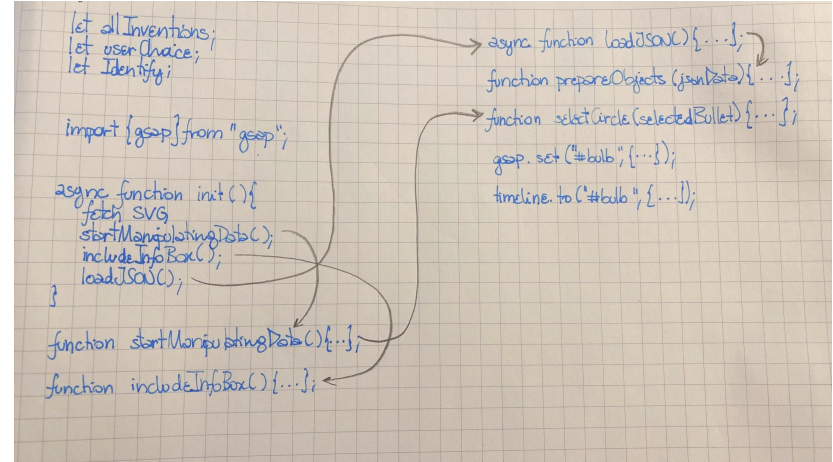 let allInventions;
let userChoice;
let Identify;
import {gsap} from "gsap";
async function init(){
fetch SVG
startManipulatingData();
includeInfoBox();
loadJSON();
}
function startManipulatingData(){...};
function includeInfoBox(){...};
async function loadJSON(){...};
function prepareObjects(jsonData){...};
function selectCircle(selectedBullet){...};
gsap.set("#bulb",{...});
timeline.to("#bulb",{...});